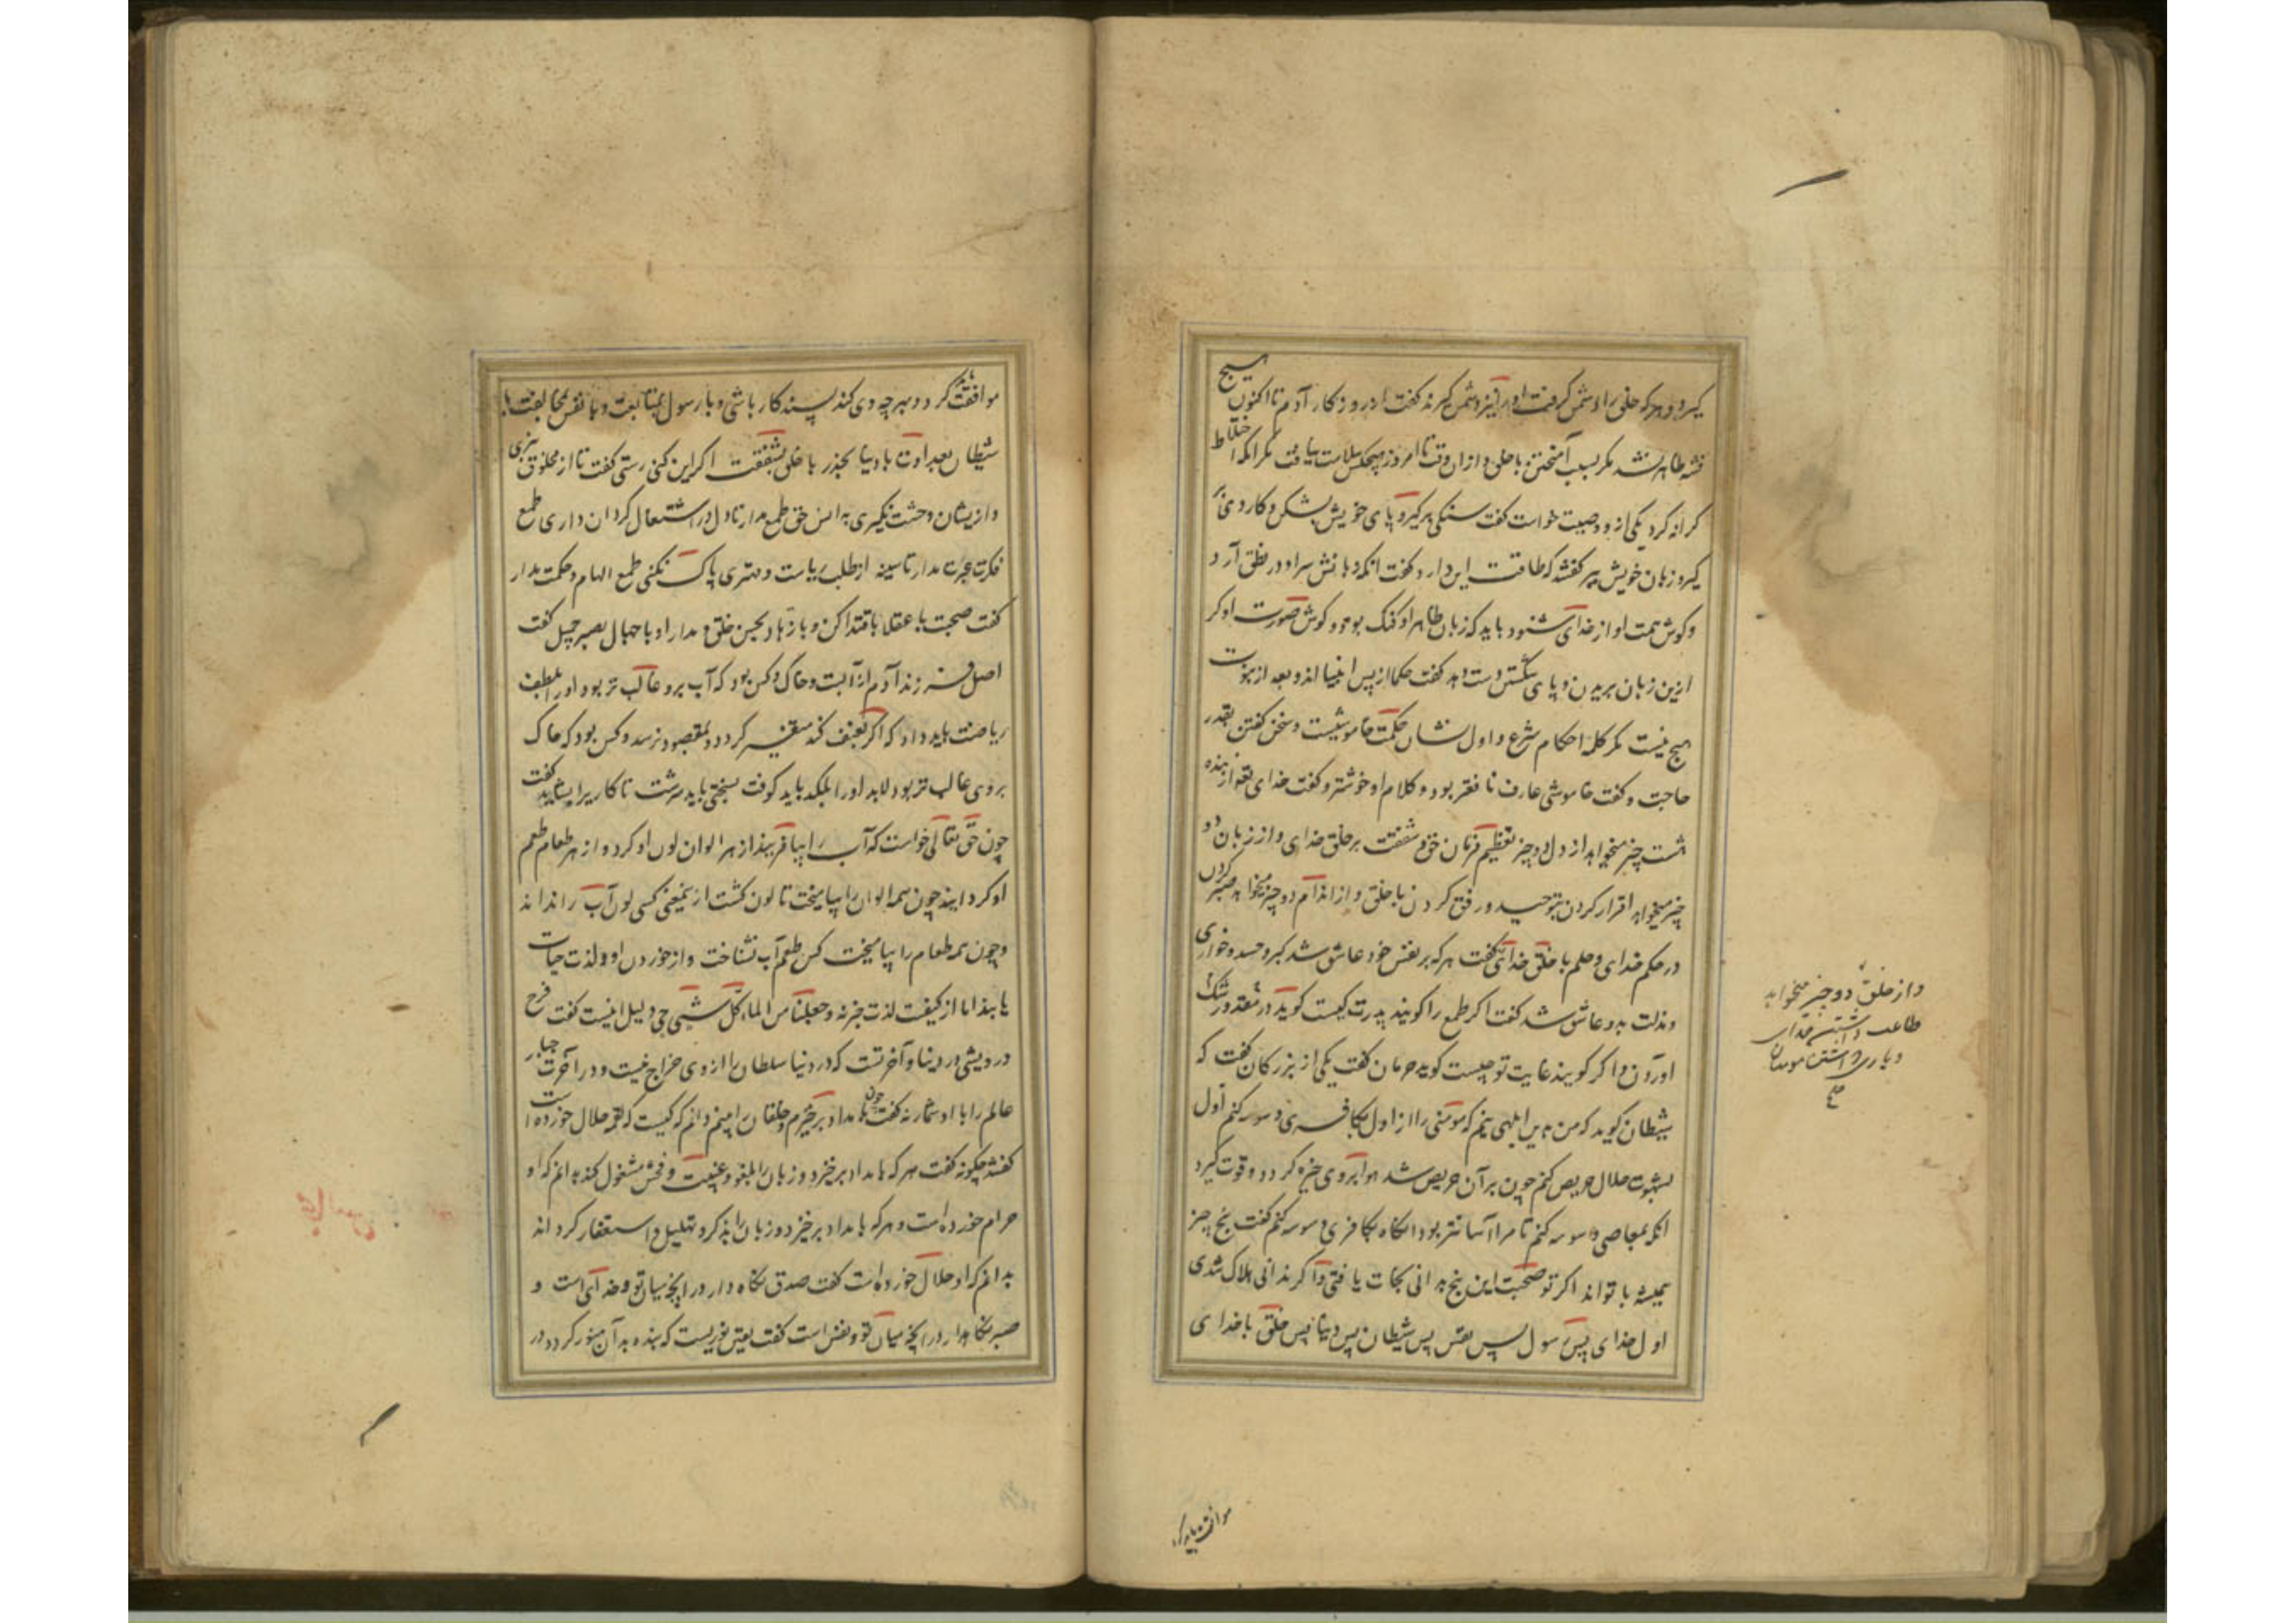 گیرد و هر که خلق را دشمن گرفت او را نیز دشمن گیرند گفت از روزگار آدم تا اکنون هیچ
فتنه ظاهر نشد مگر بسبب آمیختن با خلق و از آن وقت تا امروز هیچکس سلامت نیافت مگر آنکه از اختلاط
کرانه کرد یکی از و وصیت خواست گفت سنگی برگیر و پای خویش بشکن و کاردی بر
گیر و زبان خویش ببر گفتند که طاقت این دارد گفت آنکه دهانش سر او در نطق آرد
و گوش همت او از خدای شنود باید که زبان ظاهر او گنگ بود و گوش صورت او کر
ازین زبان بریدن و پای شکستن دست دهد گفت حکما از پس انبیا اند و بعد از نبوت
هیچ نیست مگر کله احکام شرع و اول نشان حکمت خاموشیست و سخن گفتن بقدر
حاجت و گفت خاموشی عارف نافعتر بود و کلام او خوشتر و گفت خدای تعه از بنده
هشت چیز میخواهد از دل دو چیز تعظیم فرمان حق و شفقت بر خلق خدای و از زبان دو
چیز میخواهد اقرار کردن بتوحید و رفق کردن با خلق و از اندام دو چیز میخواهد صبر کردن
در حکم خدای و حلم با خلق خدای گفت هر که بر نفس خود عاشق شد کبر و حسد و خواری
و مذلت بدو عاشق شد گفت اگر طمع را گویند پدرت کیست گوید در مقدور شک
آوردن و اگر گویند غایت تو چیست گوید حرمان گفت یکی از بزرگان گفت که
شیطان گوید که من بدین ابلهی نیم که مؤمنی را از اول بکافری وسوسه کنم اول
بشهوت حلال حریص کنم چون بر آن حریص شد هوا بروی چیره گردد و قوت گیرد
آنگه بمعاصی وسوسه کنم تا مرا آسانتر بود آنگاه بکافری وسوسه کنم گفت پنج چیز
همیشه با تو اند اگر تو صحبت این پنج بدانی نجات یافتی و اگر ندانی هلاک شدی
اول خدای پس رسول پس نفس پس شیطان پس دنیا پس خلق با خدای
و از خلق دو چیز میخواهد
طاعت داشتن خدای
و یاری داشتن مومنان
صح
موافقت باید کرد
موافقت کرد و هر چه وی کند پسند کار باشی و با رسول بمتابعت و با نفس بمخالفت با
شیطان بعداوت با دنیا بحذر با خلق بشفقت اگر این کنی رستی گفت تا از مخلوق نبری
و ازیشان وحشت نگیری به انس حق طمع مدار تا دل در اشتغال گردان داری طمع
فکرت عبرت مدار تا سینه از طلب ریاست و مهتری پاک نکنی طمع الهام و حکمت مدار
گفت صحبت با عقلا باقتدا کن و با زهاد بحسن خلق و مدارا و با جهال بصبر جمیل گفت
اصل فرزند آدم از آبست و خاک و کس بود که آب برو غالب تر بود او را بلطف
ریاضت باید داد که اگر بعنف کند متغیر گردد و بمقصود نرسد و کس بود که خاک
بروی غالب تر بود لابد او را بلگد باید کوفت بسختی باید سرشت تا کاری را بشاید گفت
چون حق تعالی خواست که آب را بیافریند از هر الوان لون او کرد و از هر طعام طعم
او گردانید چون همه الوان را بیامیخت تا لون گشت ازینمعنی کسی لون آب را نداند
و چون همه طعام را بیامیخت کس طعم آب نشناخت و از خوردن او لذت حیات
یابند اما از کیفیت لذت خبر نه و جعلنا من الماء کل شیء حی دلیل اینست گفت فرح
درویشی در دنیا و آخرتست که در دنیا سلطان را از وی خراج نیست و در آخرت جبار
عالم را با او شمار نه گفت چون بامداد برخیزم و خلقان را بینم دانم که کیست که لقمه حلال خورده است
گفتند چگونه گفت هر که بامداد برخیزد و زبان را بلغو و غیبت و فحش مشغول کند دانم که او
حرام خورده است و هر که بامداد برخیزد و زبان را بذکر و تهلیل و استغفار گرداند
بدانم که او حلال خورده است گفت صدق نگاه دار در آنچه میان تو و خدای است و
صبر نگاهدار در آنچه میان تو و نفس است گفت یقین نوریست که بنده بدان منور گردد در